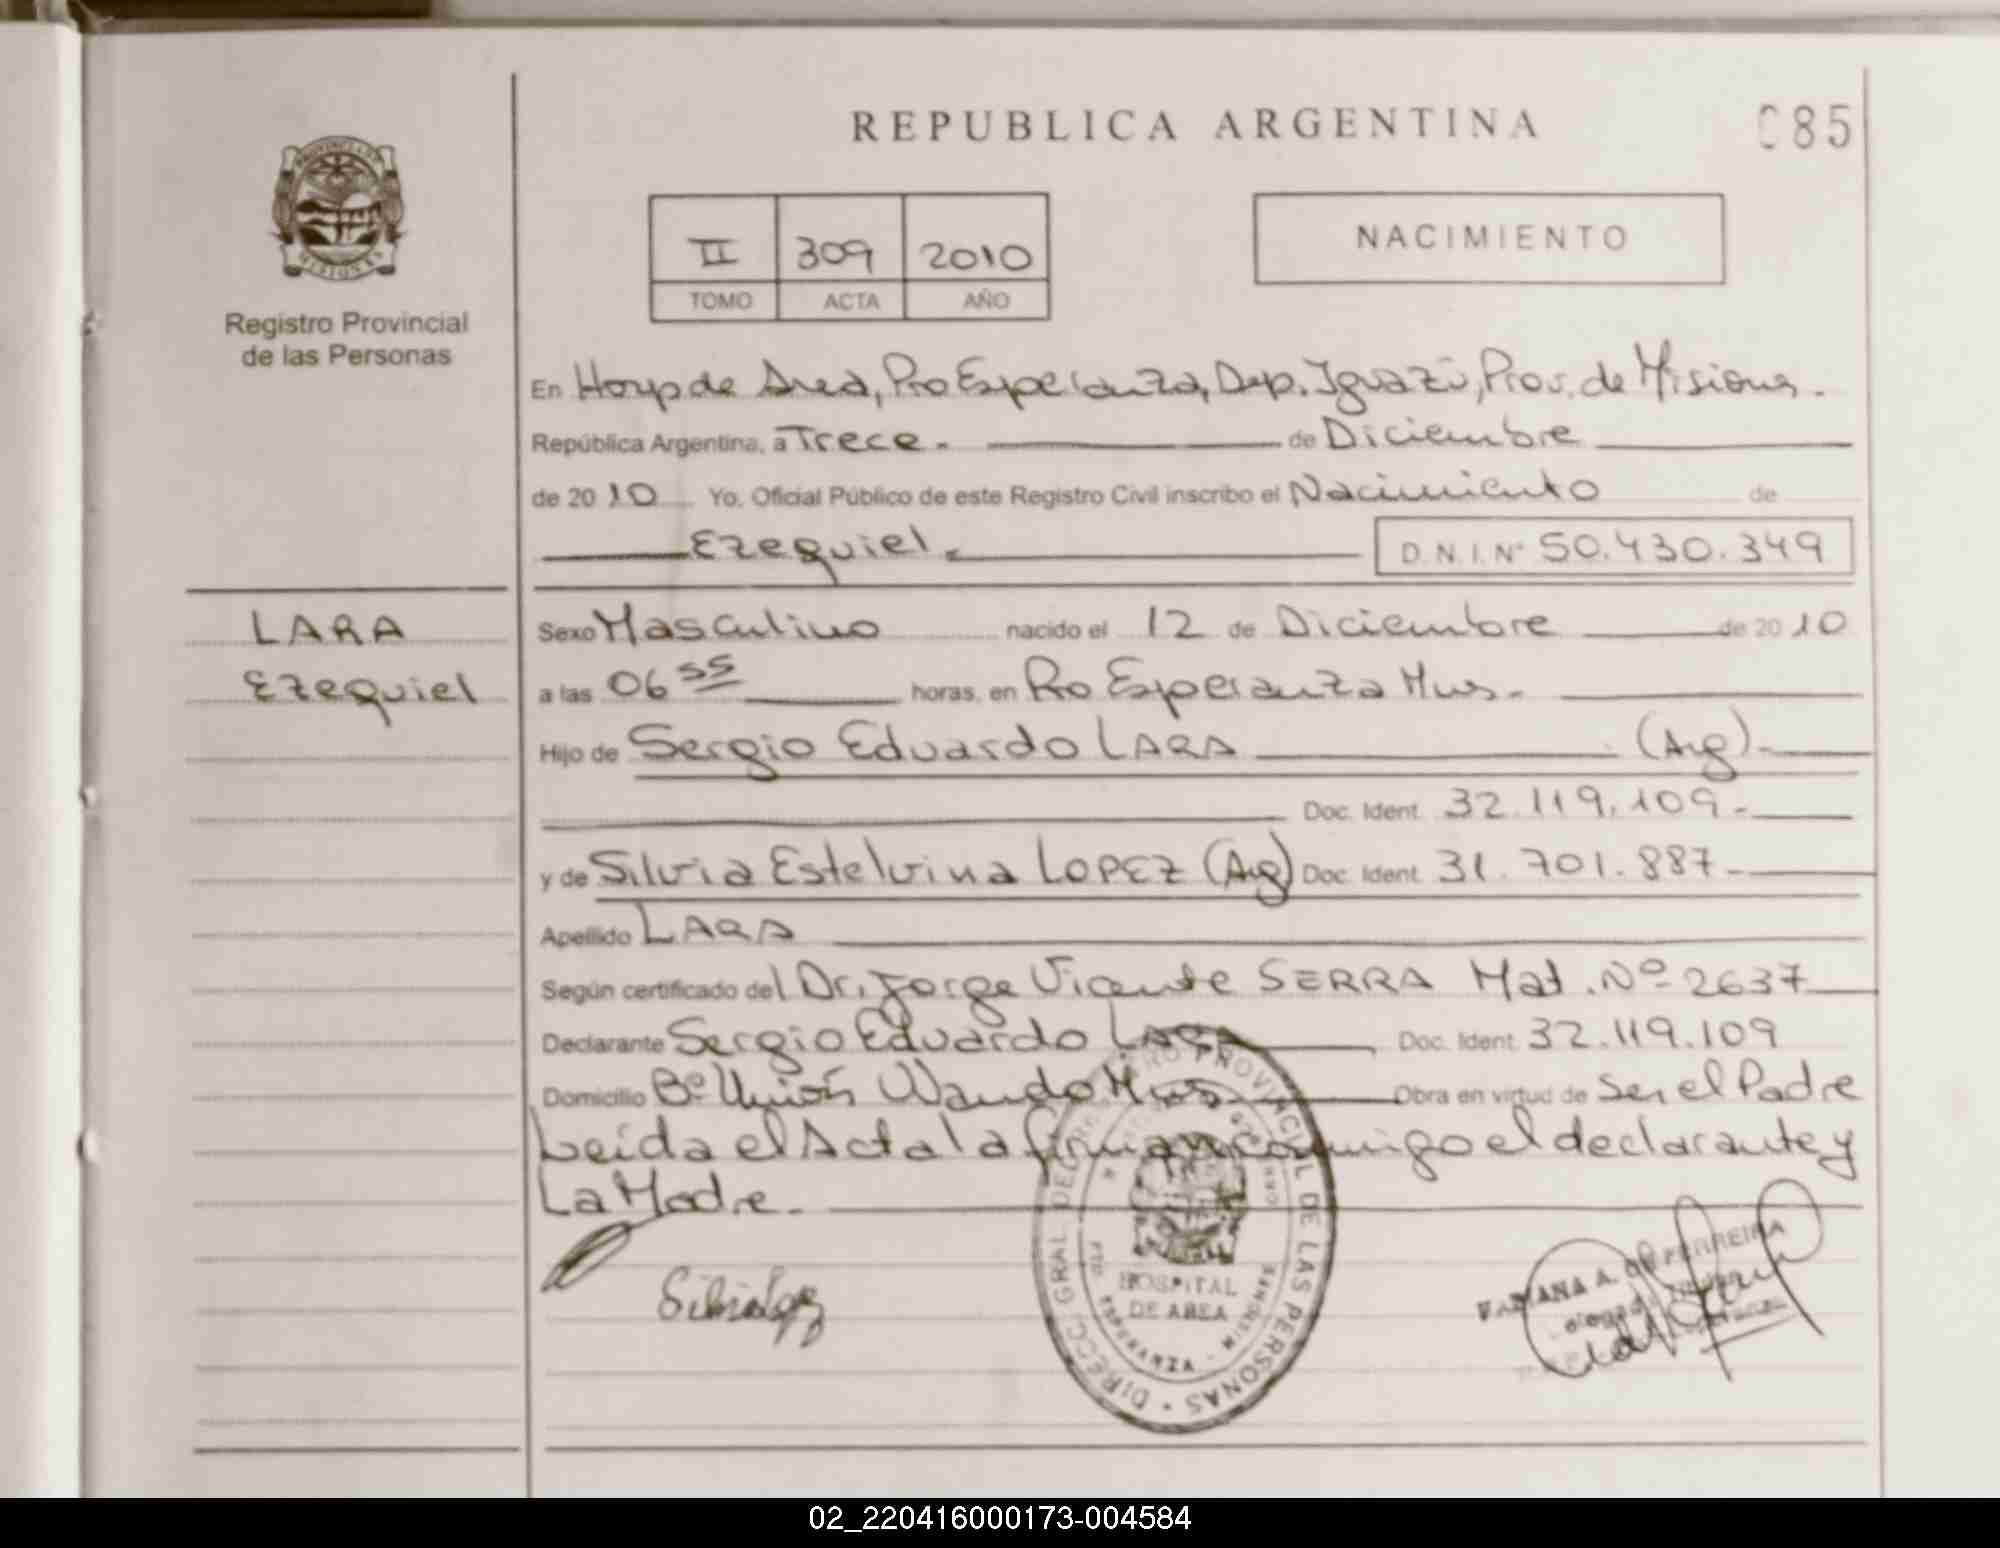 REPUBLICA ARGENTINA
085
PROVINCIA DE
MISIONES
Registro Provincial
de las Personas
II 309 2010
TOMO ACTA AÑO
NACIMIENTO
En Hosp de Area, Pto Esperanza, Dep. Iguazú, Prov. de Misiones.
República Argentina, a Trece. de Diciembre
de 2010 Yo, Oficial Público de este Registro Civil inscribo el Nacimiento de
Ezequiel. D.N.I. Nº 50.430.349
LARA
Ezequiel
Sexo Masculino nacido el 12 de Diciembre de 2010
a las 06 55 horas, en Pto Esperanza Mnes.
Hijo de Sergio Eduardo LARA (Arg).
Doc. Ident. 32.119.109.
y de Silvia Estelvina LOPEZ (Arg) Doc. Ident. 31.701.887.
Apellido LARA
Según certificado del Dr. Jorge Vicente SERRA Mat. Nº 2637
Declarante Sergio Eduardo LARA Doc. Ident. 32.119.109
Domicilio Bº Unión Wanda Mnes Obra en virtud de Ser el Padre
Leida el Acta la firman conmigo el declarante y
La Madre.
Silvia Lopez
DIRECC. GRAL. DEL REGISTRO PROVINCIAL DE LAS PERSONAS
HOSPITAL
DE AREA
PTO ESPERANZA - MISIONES
FABIANA A. DE FERREIRA
02_220416000173-004584